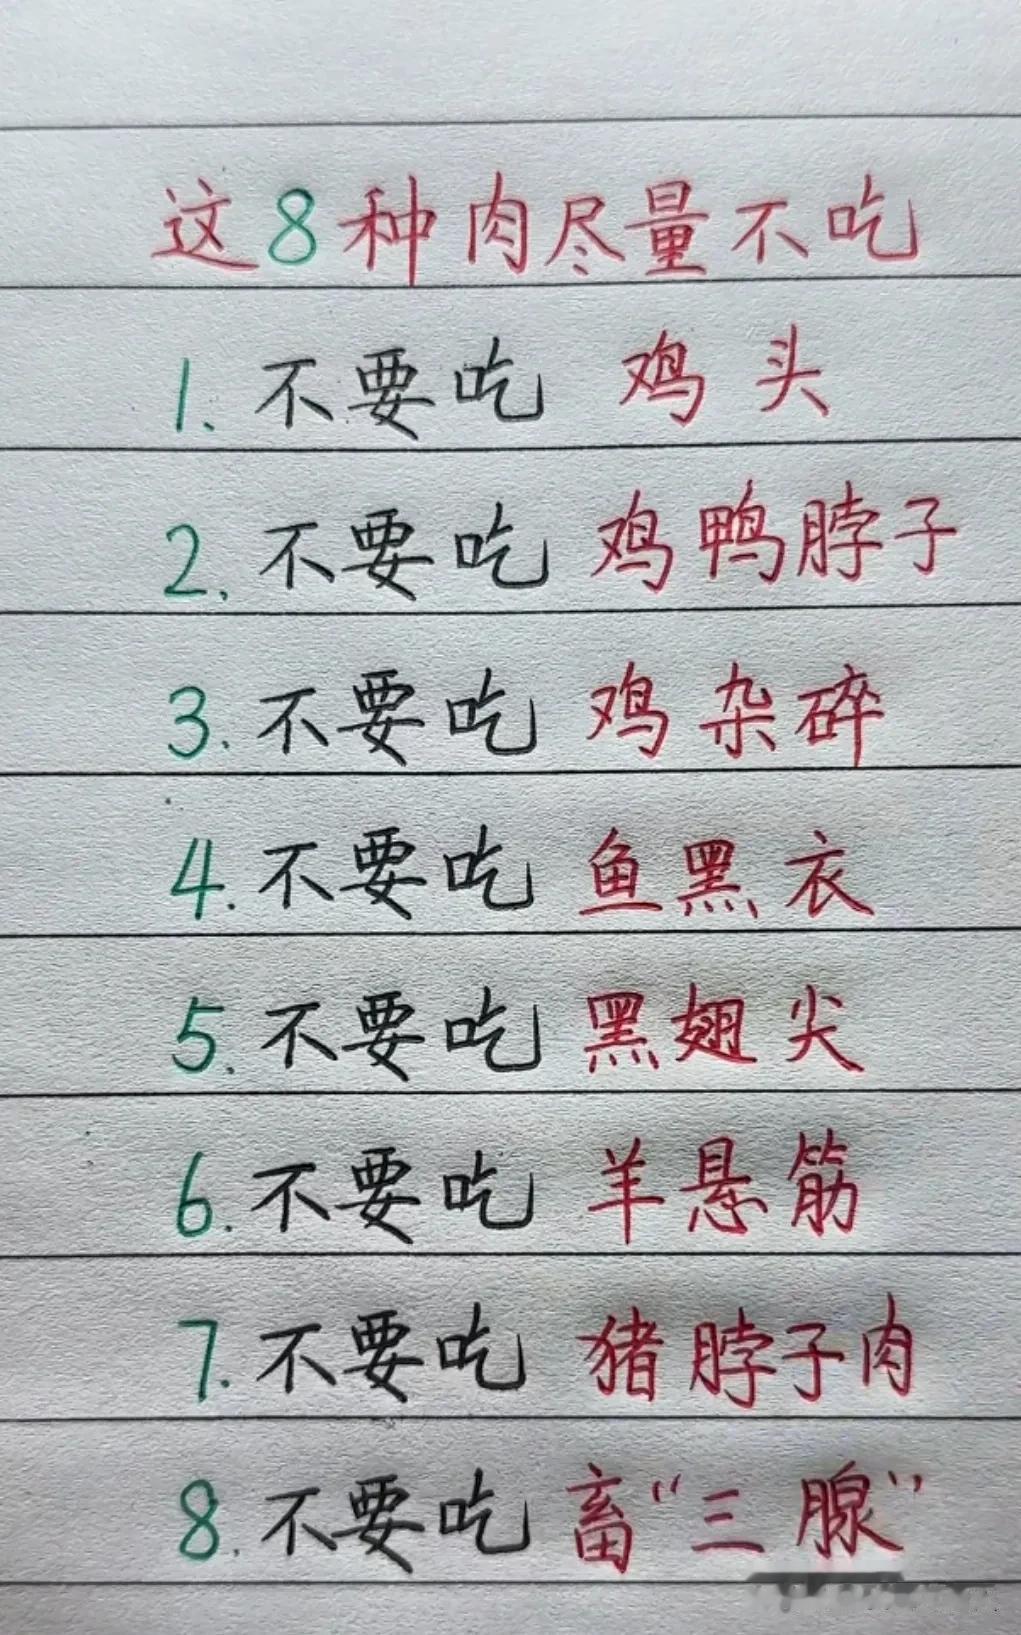 这8种肉尽量不吃
1. 不要吃 鸡头
2. 不要吃 鸡鸭脖子
3. 不要吃 鸡杂碎
4. 不要吃 鱼黑衣
5. 不要吃 黑翅尖
6. 不要吃 羊悬筋
7. 不要吃 猪脖子肉
8. 不要吃 畜“三腺”